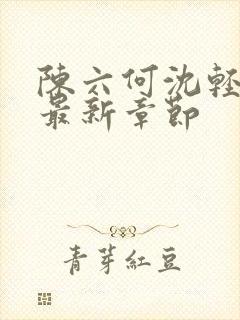 陳六何沈輕
最新章節
青芽紅豆